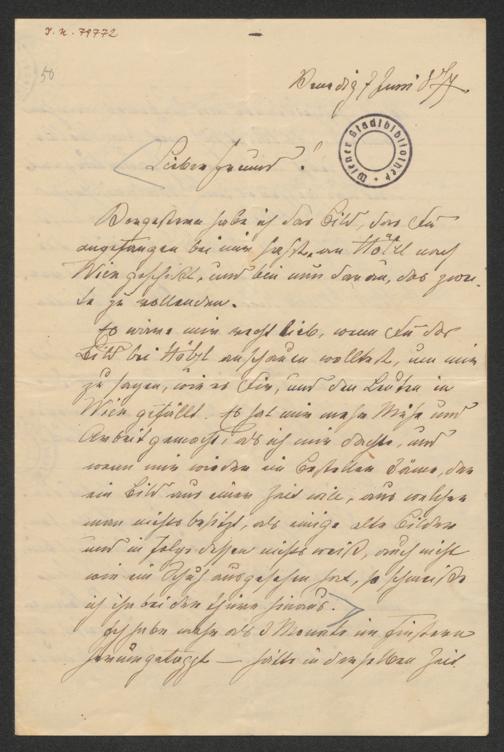 J. N. 79772
50
Venedig 7 Juni
Wiener Stadtbibliothek
Lieber Freund!
Vorgestern habe ich das Bild, das Du
angefangen bei mir sahst, an nach
Wien geschickt, und bin nun daran, das zwei-
te zu vollenden.
Es wäre mir recht lieb, wenn Du das
Bild bei anschauen wolltest, um mir
zu sagen, wie es Dir, und den Leuten in
Wien gefällt. Es hat mir mehr Mühe und
Arbeit gemacht, als ich mir dachte, und
wenn mir wieder ein Besteller käme, der
ein Bild aus einer Zeit will, aus welcher
man nichts besitzt, als einige alte Bilder
und in Folge dessen nichts weiß, auch nicht
wie ein Schuh ausgesehen hat, so schmeiße
ich ihn bei der Thüre hinaus.
Ich habe mehr als 3 Monate im Finstern
herumgetappt — hätte in derselben Zeit